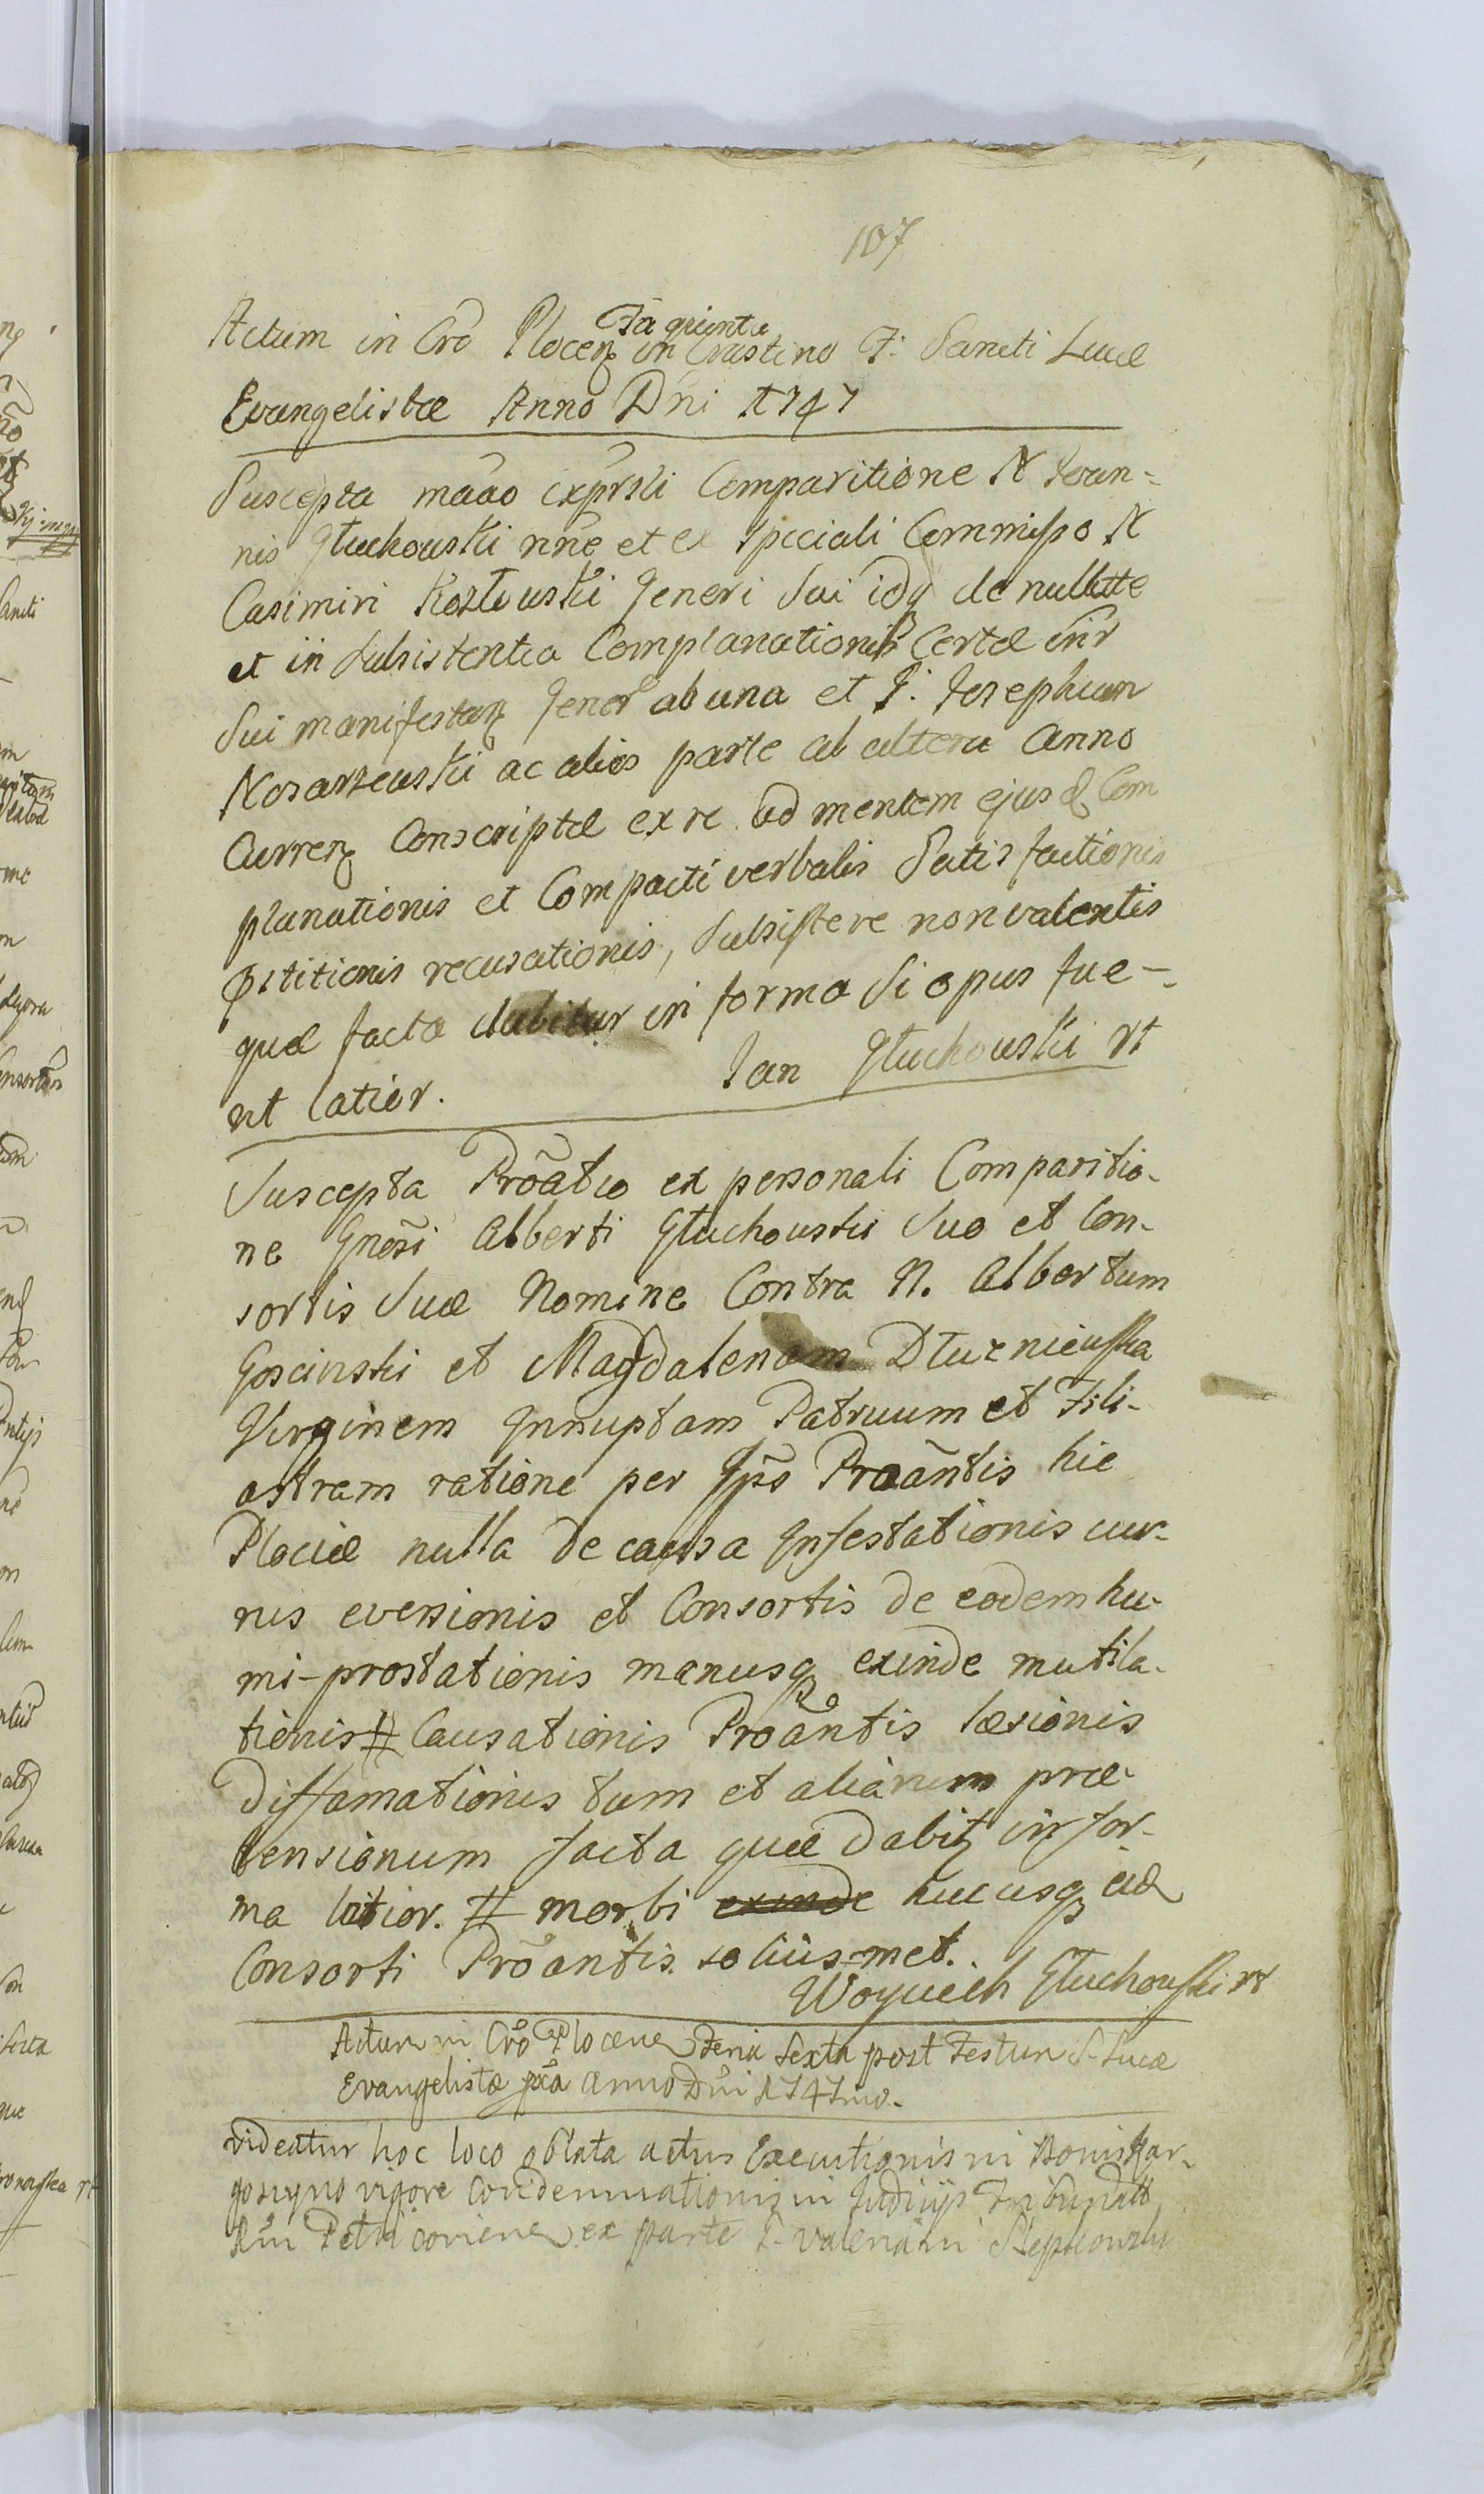 107
Actum in Cro Plocen fa quinta in Crastino F: Sancti Lucæ
Evangelistæ Anno Dni 1747
Suscepta maão exprsli Comparitione N Joan-
nis Głuchowski nne et ex speciali Commisso N
Casimiri Kozłowski Generi Sui idq de nullitte
et in subsistentia Complanationis Certæ intr
Sui manifestan Gener ab una et G: Josephum
Nosarzewski ac alios parte ab altera Anno
Curren Conscriptæ ex re ad mentem ejusd Com
planationis et Compacti verbalis Satisfactionis
recusationis, Subsistere non valentis
quæ facta dabitur in forma Si opus fue-
rit latior. Jan Głuchowski rt
Suscepta Prõatio ex personali Comparitio-
ne Gnosi Alberti Głuchowski Suo et Con-
sortis Suæ Nomine Contra N. Albertum
Goscinski et Magdalenam Dłuzniewska
Virginem Innuptam Patruum et Fili-
astram ratione per Ipso Proãntis hic
Plociæ nulla de causa Infestationis cur-
rus eversionis et Consortis de eodem hu-
mi-prostationis manusq exinde mutila-
tionis # Causationis Proãntis læsionis
Diffamationis tum et aliarum præ-
tensionum facta quæ dabitz in for-
ma latior. # morbi exinde hucusq eid
Consorti Prõantis soliusmet.
Woyciech Głuchowski rt
Actum in Cro Plocen Feria Sexta post Festum S. Lucæ
Evangelistæ pxa anno Dni 1747mo.
videatur hoc loco oblata actus Executionis in Bonis Gar-
vigore Condemnationis in Judicijs
ex parte